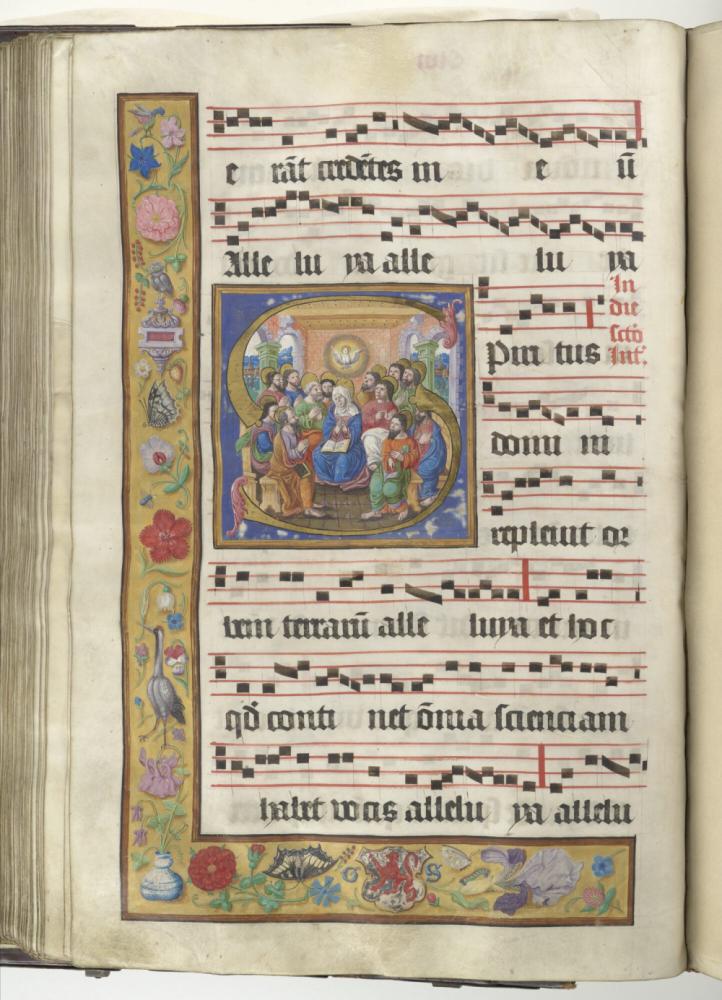 e rāt credētes in e ū
Alle lu ya alle lu ya
In die scto Int.
Spiri tus
domi ni
repleuit or
bem terrarū alle luya et hoc
qđ conti net ōnia scienciam
habet vocis allelu ya allelu
G S